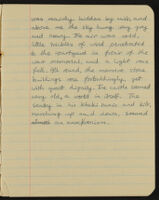 was mainly hidden by mist, and
above me the sky hung very grey
and heavy. The air was cold,
little whistles of wind penetrated
to the courtyard in front of the
war memorial, and a light rain
fell. All round, the massive stone
buildings rose forbiddingly, yet
with great dignity. The castle seemed
very old, a world in itself. The
sentry in his khaki tunic and kilt,
marching up and down, seemed
almost an anachronism.